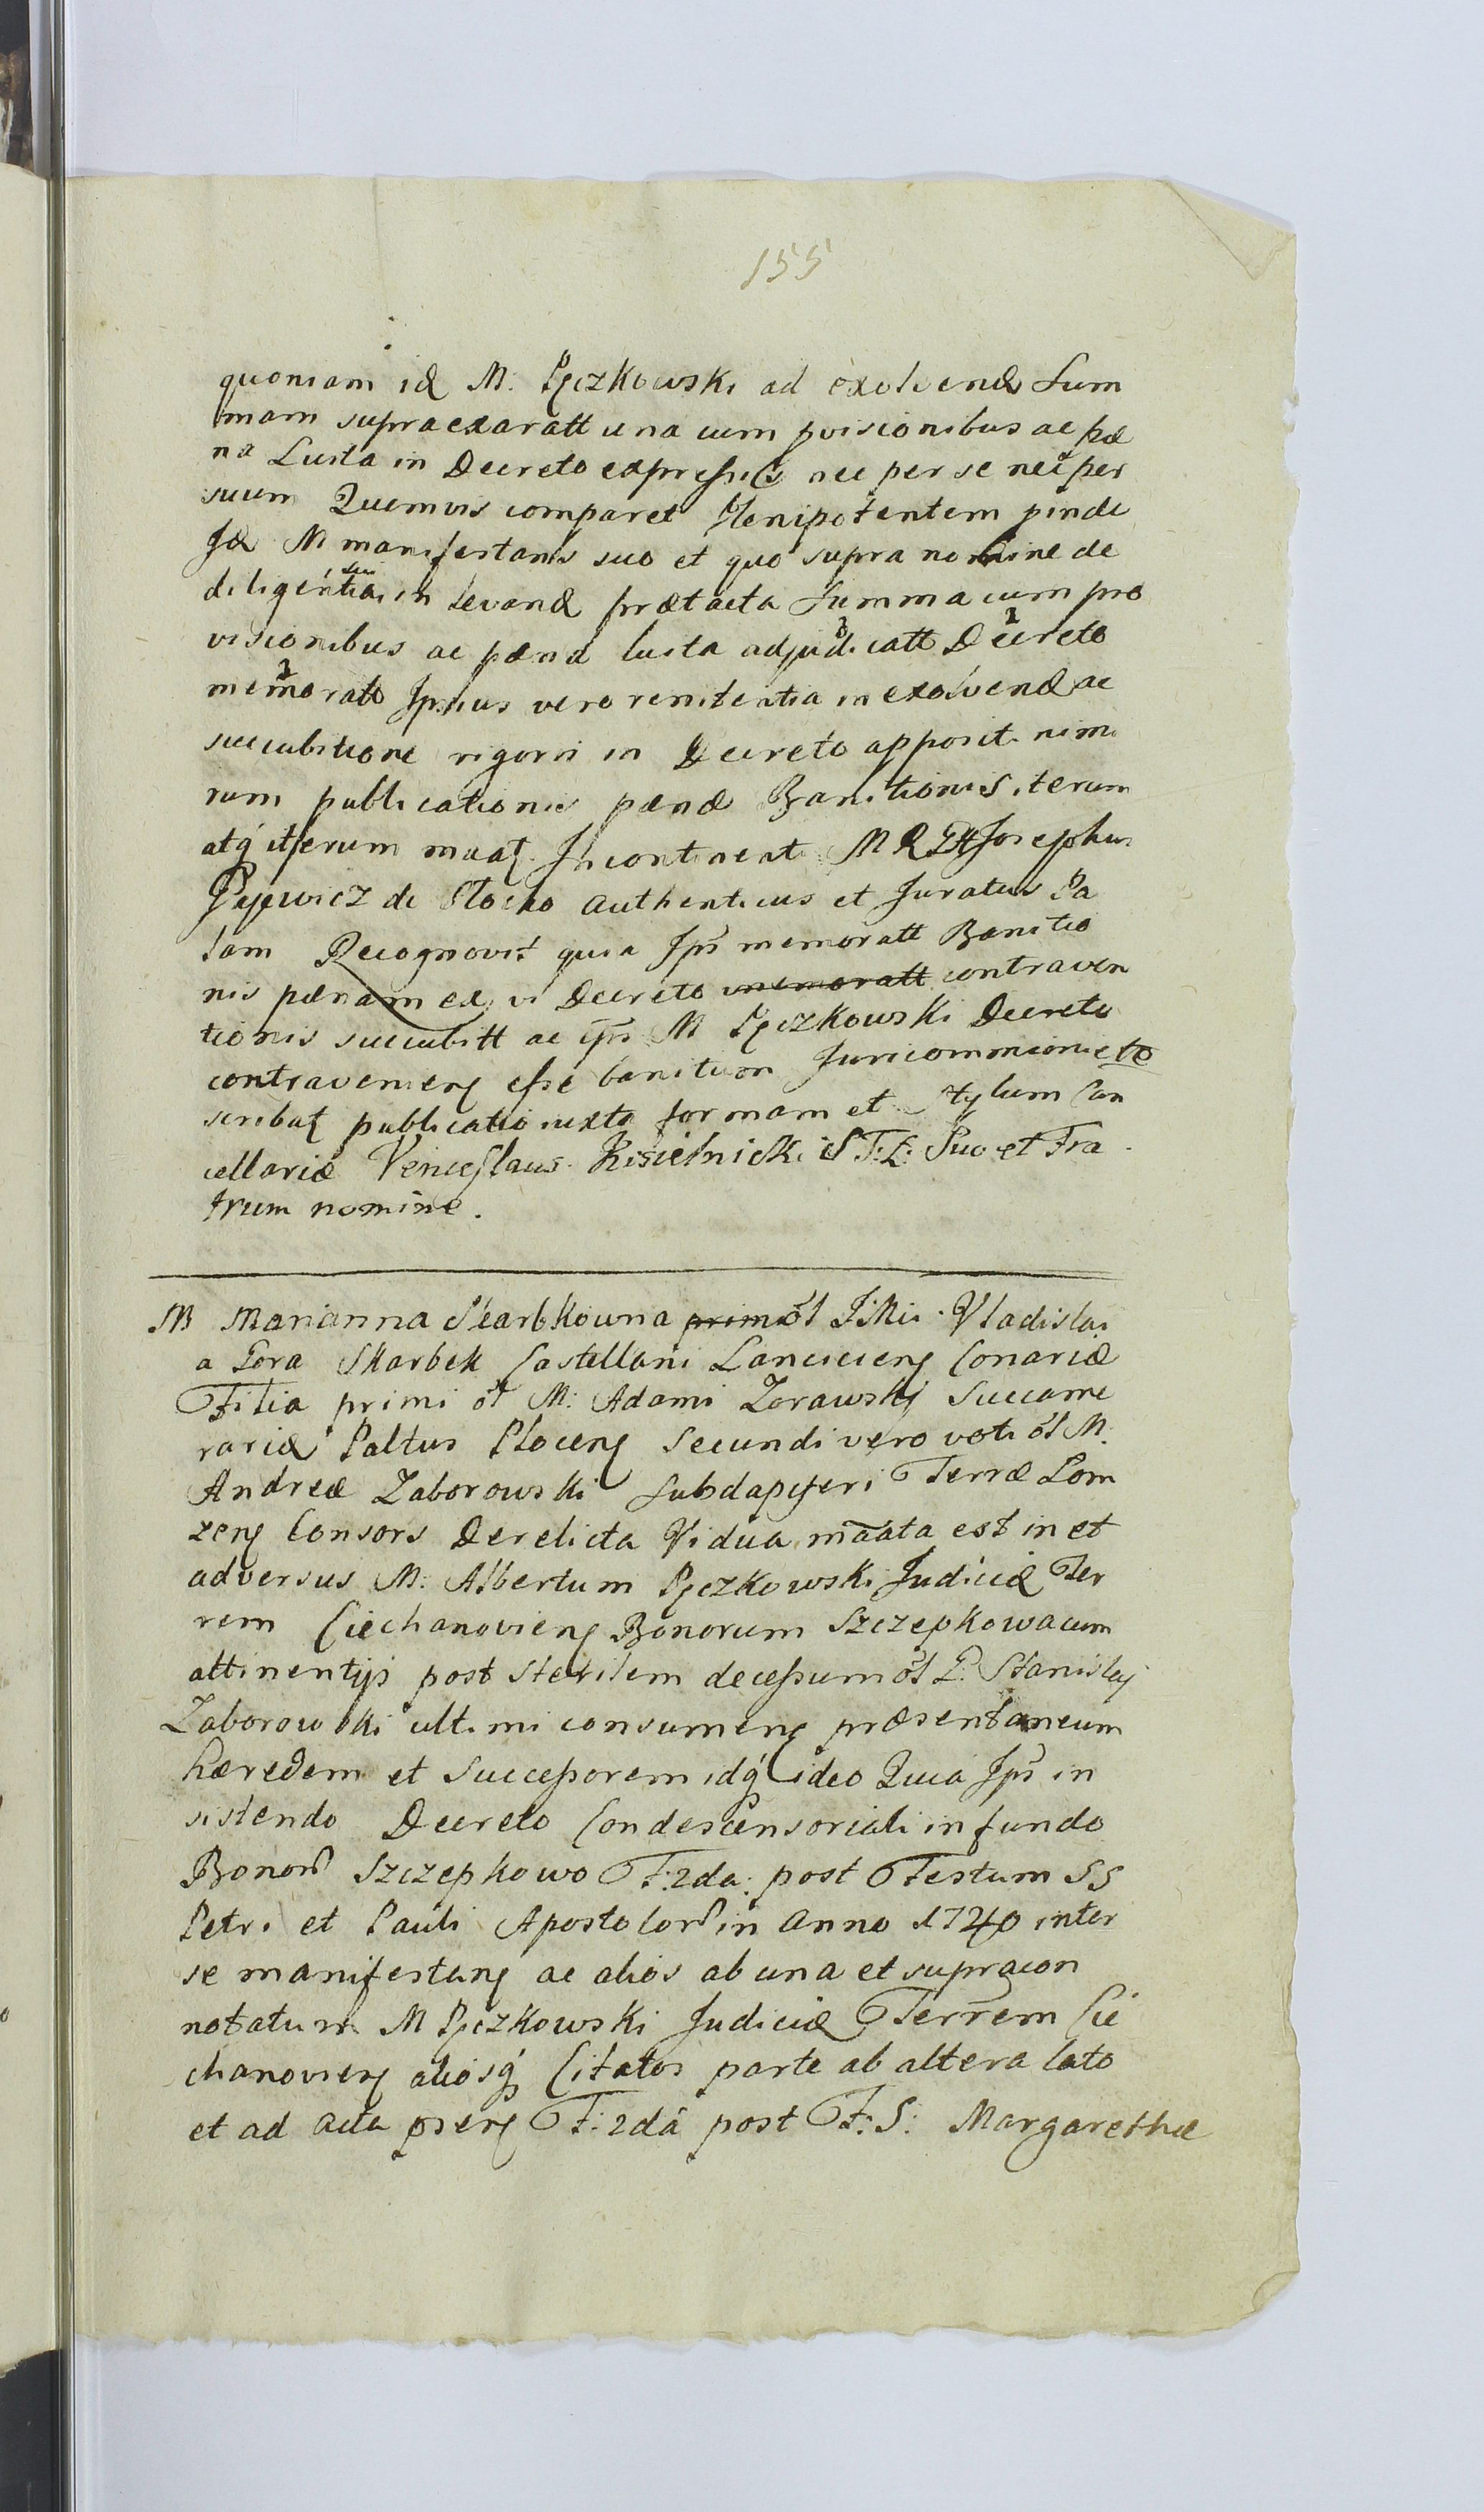 155
quoniam id M: Pęczkowski ad exolvend Sum
mam supraexaratt una cum pvisionibus ac pæ
na Lusta in Decreto expressis nec per se nec per
suum Quemvis comparet Plenipotentem pinde
Id M manifestans suo et quo supra nomine de
diligentia sui in levand prætacta Summa cum pro
visionibus ac pæna lusta adjudicatt Decreto
memorato Ipsius vero renitentia in exolvend ac
succubitione rigoris in Decreto apposit nimi
rum publicationis pænæ Banitionis iterum
atq iterum maat. Incontinenti M R Josephus
de Plocko Authenticus et Juratus Pa
lam Recognovit quia Ips memoratt Banitio
nis pænam ex vi Decreto memoratt contraven
tionis succubitt ac ips M Pęczkowski Decreto
contravenien esse banitum Juri communiette
scribat publicatio iuxta formam et stylum Can
cellariæ Venceslaus Kisielnicki S T: Ł: Suo et Fra
trum nomine.
M Marianna Skarbkowna primi ol Vladislai
a Gora Skarbek Castellani Lancicien Conariæ
Filia primi ol M: Adami Zorawski Succame
rariæ Paltus Plocen secundi vero voti ol M:
Andreæ Zaborowski Subdapiferi Terræ Lom
zen Consors Derelicta Vidua maata est in et
adversus M: Albertum Pęczkowski Judicem Ter
rem Ciechanovien Bonorum Szczepkowa cum
attinentijs post sterilem decessum ol G. Stanislaj
Zaborowski ultimi consumen præsentaneum
hæredem et Successorem idq ideo Quia Ips in
sistendo Decreto Condescensoriali in fundo
Bonor Szczepkowo F: 2da: post Festum SS
Petri et Pauli Apostolor in Anno 1740 inter
se manifestans ac alios ab una et supracon
notatum M Pęczkowski Judicem Terrem Cie
chanovien aliosq Citatos parte ab altera lato
et ad acta psen F: 2dâ post F: S: Margarethæ